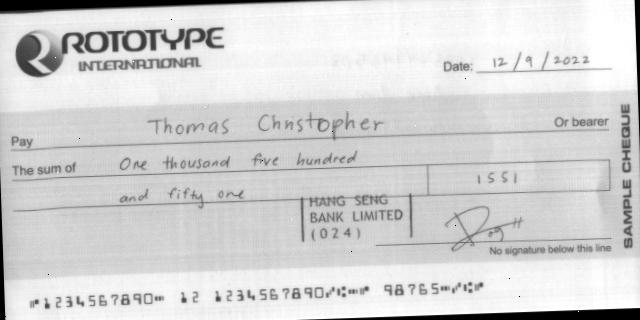 ROTOTYPE
INTERNATIONAL
Date: 12/9/2022
Pay Thomas Christopher Or bearer
The sum of One thousand five hundred
and fifty one
1551
HANG SENG
BANK LIMITED
(024)
No signature below this line
SAMPLE CHEQUE
⑈1234567890⑉ 12 1234567890⑇⑆⑉⑈ 98765⑉⑇⑆⑈